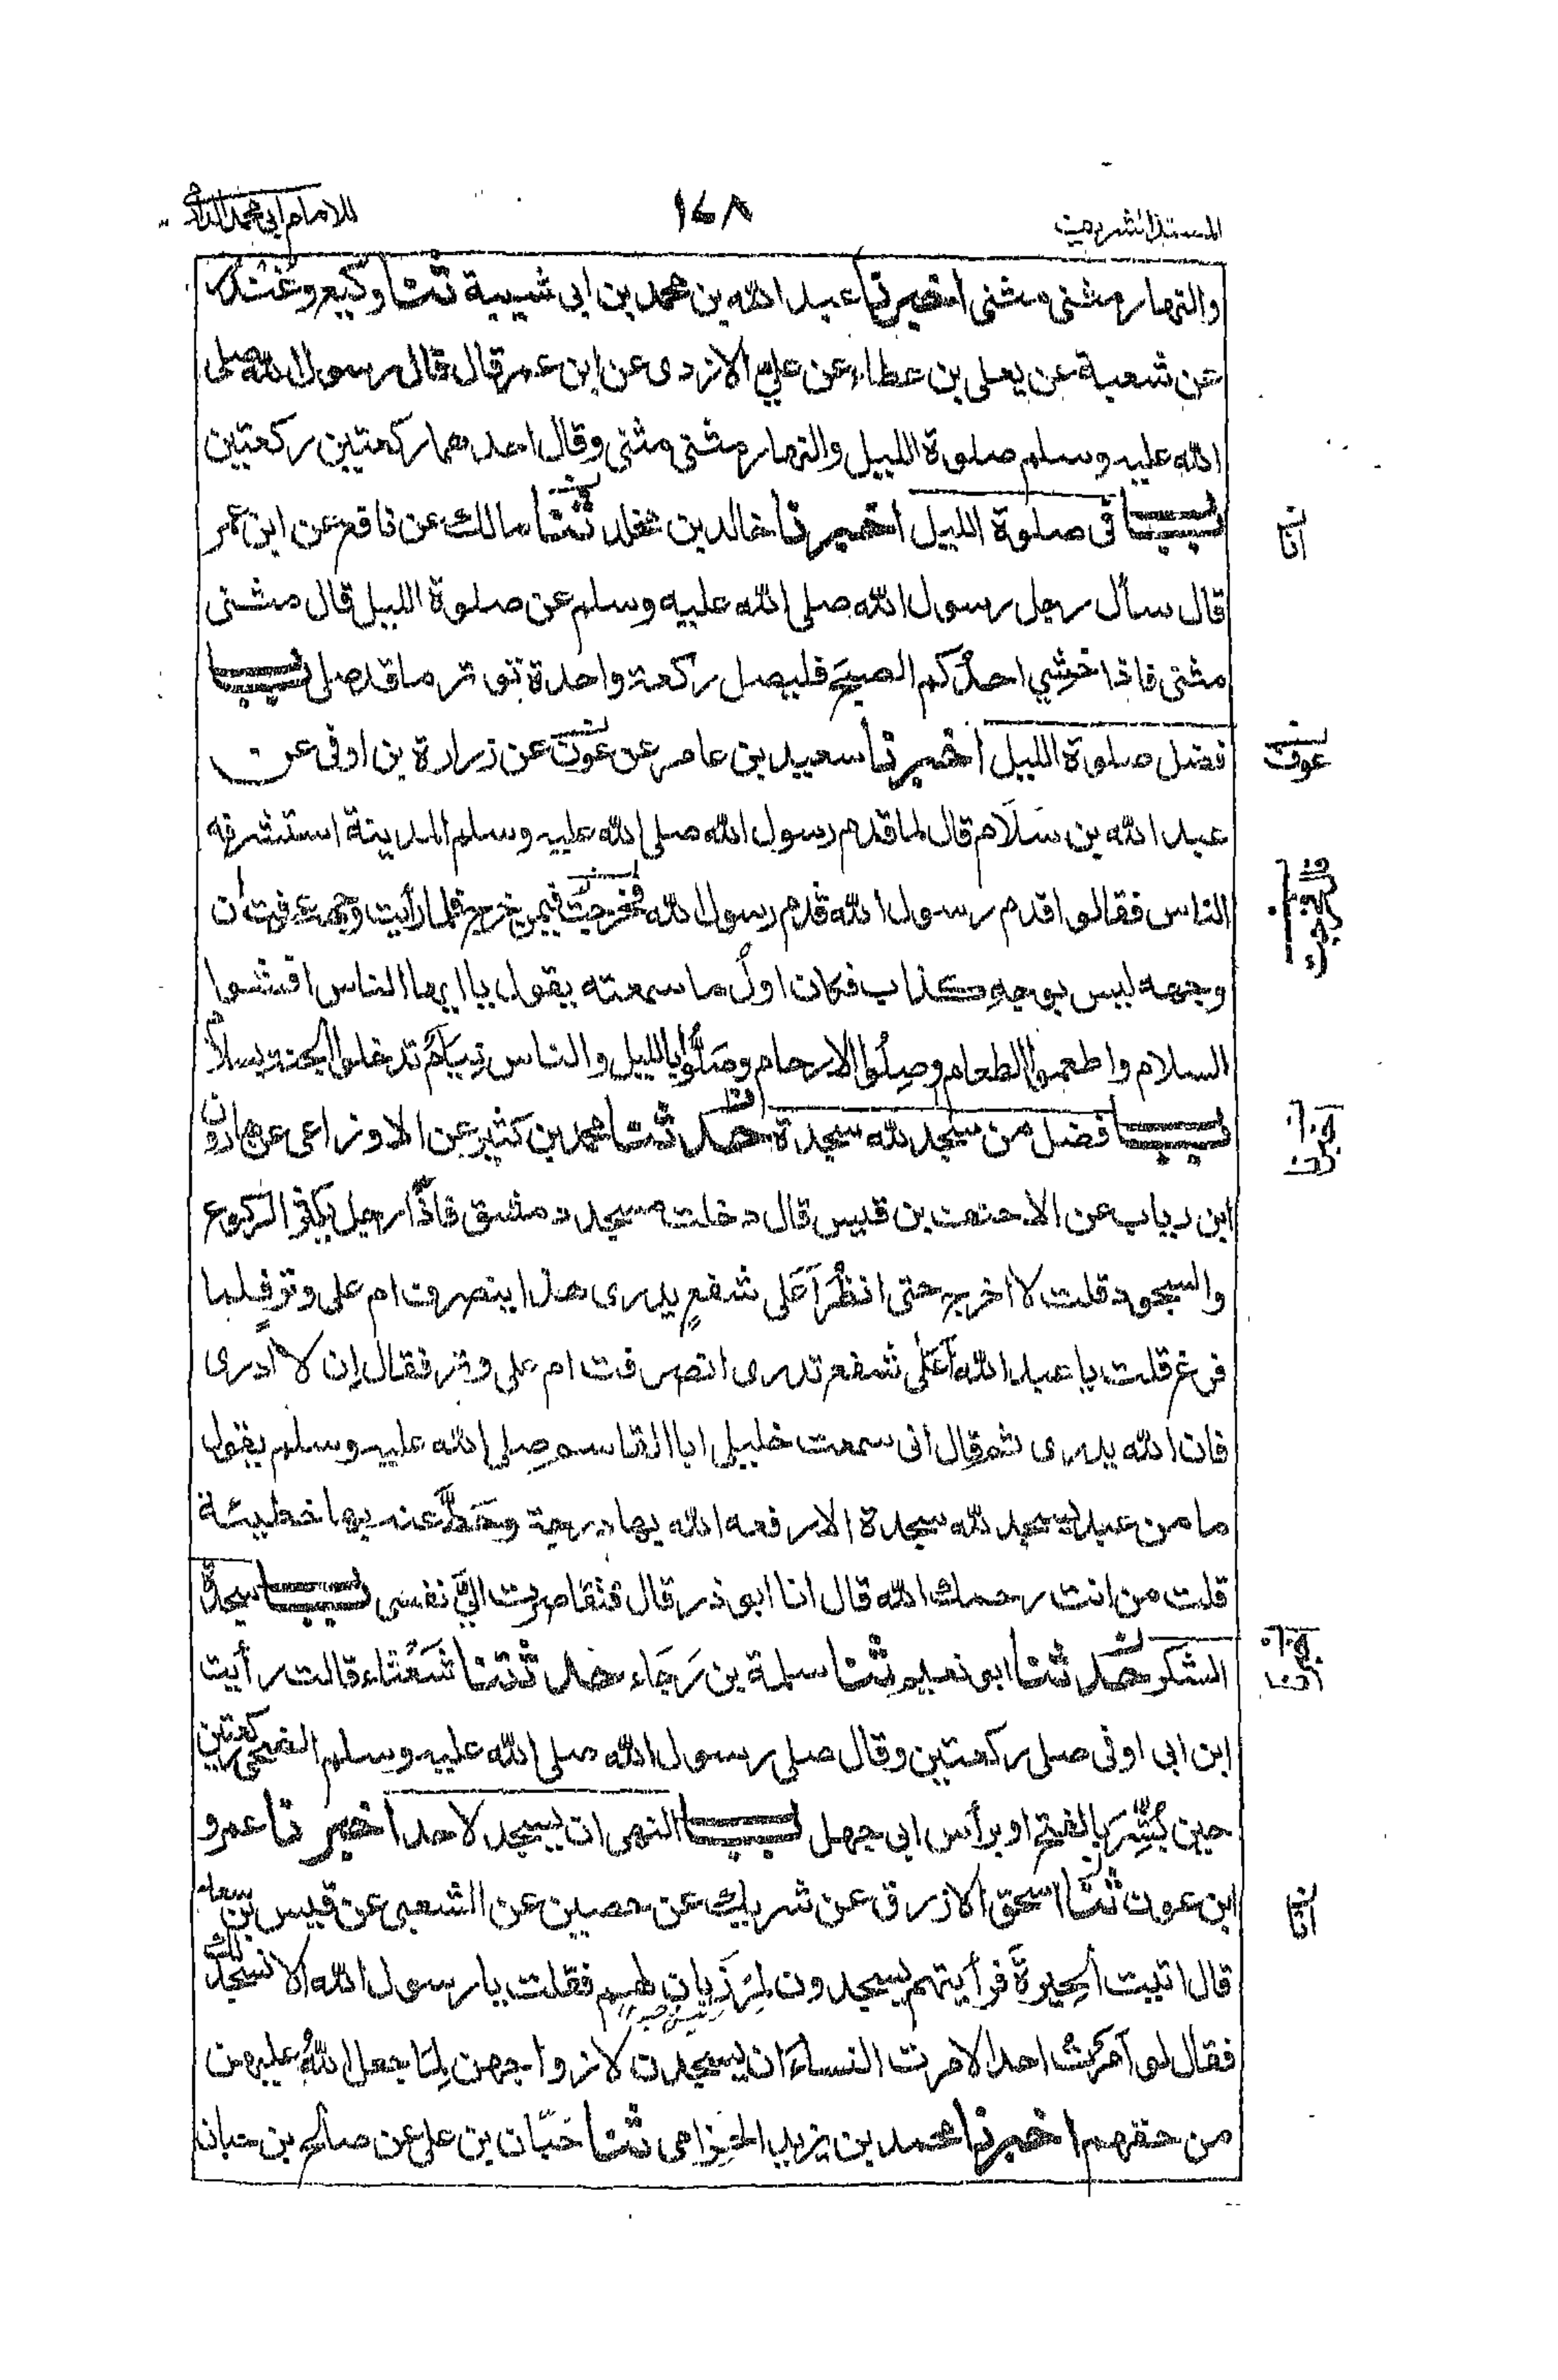 المسند الشريف
١٤٨
للامام ابي محمد الدارمي
والنهار مثنى مثنى اخبرنا عبد الله بن محمد بن ابى شيبة ثنا وكيع وغندر
عن شعبة عن يعلى بن عطاء عن علي الازدى عن ابن عمر قال قال رسول الله صلى
الله عليه وسلم صلوة الليل والنهار مثنى مثنى وقال احدهما ركعتين ركعتين
باب فى صلوة الليل اخبرنا خالد بن مخلد ثنا مالك عن نافع عن ابن عمر
قال سأل رجل رسول الله صلى الله عليه وسلم عن صلوة الليل قال مثنى
مثنى فاذا خشي احدكم الصبح فليصل ركعة واحدة توتر ما قد صلى باب
فضل صلوة الليل اخبرنا سعيد بن عامر عن عوف عن زرارة بن اوفى عن
عبد الله بن سلَام قال لما قدم رسول الله صلى الله عليه وسلم المدينة استشرفه
الناس فقالوا قدم رسول الله قدم رسول الله فخرجت فيمن خرج فلما رأيت وجهه عرفت ان
وجهه ليس بوجهِ كذاب فكان اولُ ما سمعته يقول يا ايها الناس افشوا
السلام واطعموا الطعام وصِلُوا الارحام وصَلُّوا بالليل والناس نِيَامٌ تدخلوا الجنة بسلامٍ
باب فضل من سجد لله سجدة حدثنا محمد بن كثير عن الاوزاعى عن هارون
ابن رياب عن الاحنف بن قيس قال دخلت مسجد دمشق فاذا رجل يكثر الركوع
والسجود قلت لا اخرج حتى انظُرَ أعَلى شفعٍ يدرى هذا ينصرف ام على وترٍ فلما
فرغ قلت يا عبد الله أعَلَى شفع تدرى انصرفت ام على وتر فقال إن لا أدرى
فان الله يدرى ثم قال انى سمعت خليلى ابا القاسم صلى الله عليه وسلم يقول
ما من عبد يسجد لله سجدة الا رفعه الله بها درجة وحَطَّ عنه بها خطيئة
قلت من انت رحمك الله قال انا ابو ذر قال فتقاصرت اليَّ نفسى باب سجدة
الشكر حدثنا ابو نعيم ثنا سلمة بن رَجَاء حدثتنا شَعْثاء قالت رأيت
ابن ابى اوفى صلى ركعتين وقال صلى رسول الله صلى الله عليه وسلم الضحى ركعتين
حين بُشِّرَ بالفتح او برأس ابى جهل باب النهى ان يسجد لاحد اخبرنا عمرو
ابن عون ثنا اسحق الازرق عن شريك عن حصين عن الشعبى عن قيس بن سعد
قال اتيت الحِيرةَ فرأيتهم يسجدون لمَرْزُبان لهم فقلت يا رسول الله الا نسجد لك
فقال لو أمرتُ احدا لامرت النساءَ ان يسجدن لازواجهن لِمَا جعل اللهُ عليهن
من حقهم اخبرنا محمد بن يزيد الحزامى ثنا حَبّان بن على عن صالح بن حبان
انا
عوف
انا